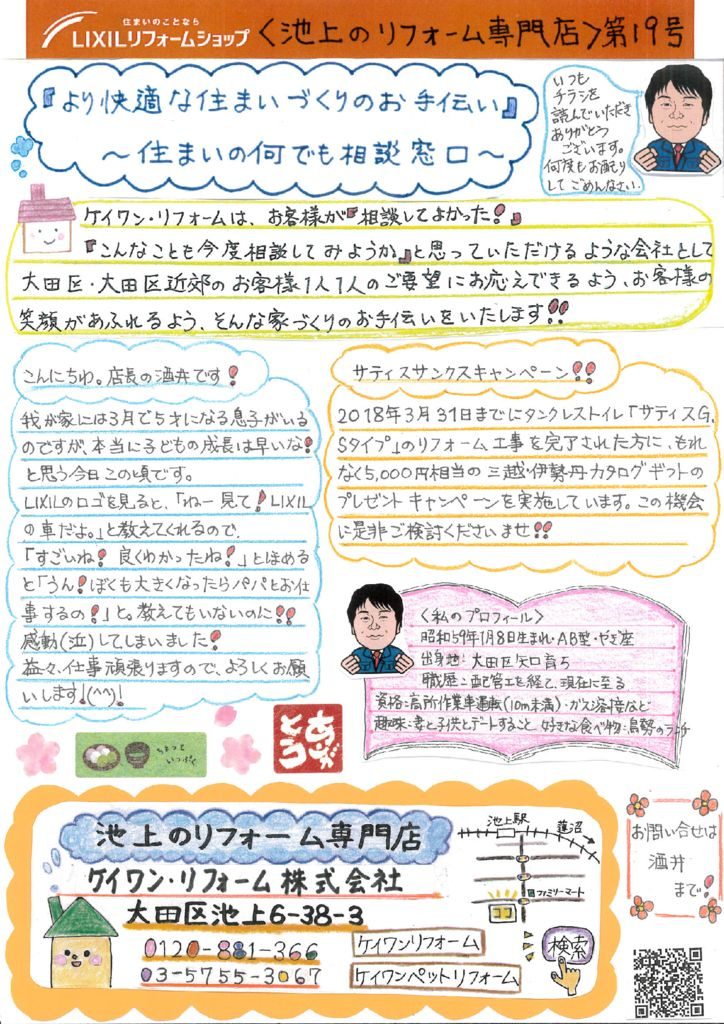 住まいのことなら
LIXILリフォームショップ
〈池上のリフォーム専門店〉第19号
『より快適な住まいづくりのお手伝い』
～住まいの何でも相談窓口～
いつも
チラシを
読んでいただき
ありがとう
ございます。
何度もお配り
してごめんなさい。
ケイワン・リフォームは、お客様が『相談してよかった!』
『こんなことも今度相談してみようか』と思っていただけるような会社として
大田区・大田区近郊のお客様1人1人のご要望にお応えできるよう、お客様の
笑顔があふれるよう、そんな家づくりのお手伝いをいたします!!
こんにちわ。店長の酒井です!
我が家には3月で5才になる息子がいる
のですが、本当に子どもの成長は早いな!
と思う今日この頃です。
LIXILのロゴを見ると、「ねー見て!LIXIL
の車だよ。」と教えてくれるので、
「すごいね!良くわかったね!」とほめる
と「うん!ぼくも大きくなったらパパとお仕
事するの!」と。教えてもいないのに!!
感動(泣)してしまいました!
益々、仕事頑張りますので、よろしくお願
いします!(^^)!
サティスサンクスキャンペーン!!
2018年3月31日までにタンクレストイレ「サティスG.
Sタイプ」のリフォーム工事を完了された方に、もれ
なく5,000円相当の三越・伊勢丹カタログギフトの
プレゼントキャンペーンを実施しています。この機会
に是非ご検討くださいませ!!
〈私のプロフィール〉
昭和59年1月8日生まれ・AB型・やぎ座
出身地:大田区矢口育ち
職歴:配管工を経て、現在に至る
資格:高所作業車運転(10m未満)・ガス溶接など
趣味:妻と子供とデートすること 好きな食べ物:鳥勢のランチ
ちょっと
いっぷく
ありがとう
池上のリフォーム専門店
ケイワン・リフォーム株式会社
大田区池上6-38-3
0120-881-366
03-5755-3067
池上駅
蓮沼
ファミリーマート
ココ
ケイワンリフォーム
ケイワンペットリフォーム
検索
お問い合せは
酒井
まで!